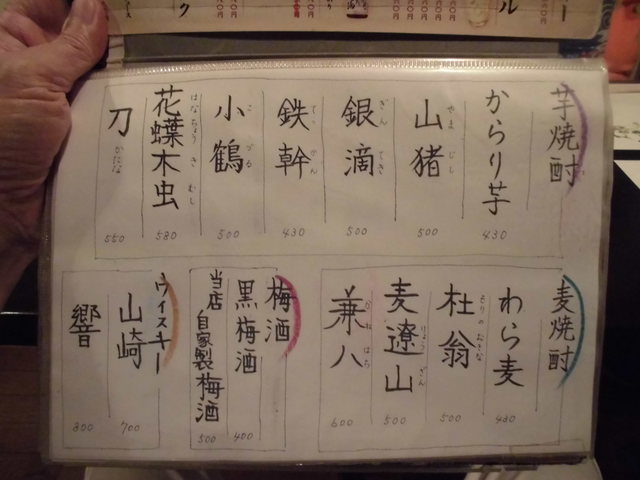 芋焼酎
からり芋
430
山猪
やまじし
500
銀滴
ぎんてき
500
鉄幹
てっかん
430
小鶴
こづる
500
花蝶木虫
はなちょうきむし
580
刀
かたな
550
麦焼酎
わら麦
430
杜翁
もりのおきな
500
麦遼山
りょうざん
500
兼八
かねはち
600
梅酒
黒梅酒
400
当店自家製梅酒
500
ウイスキー
山崎
700
響
800